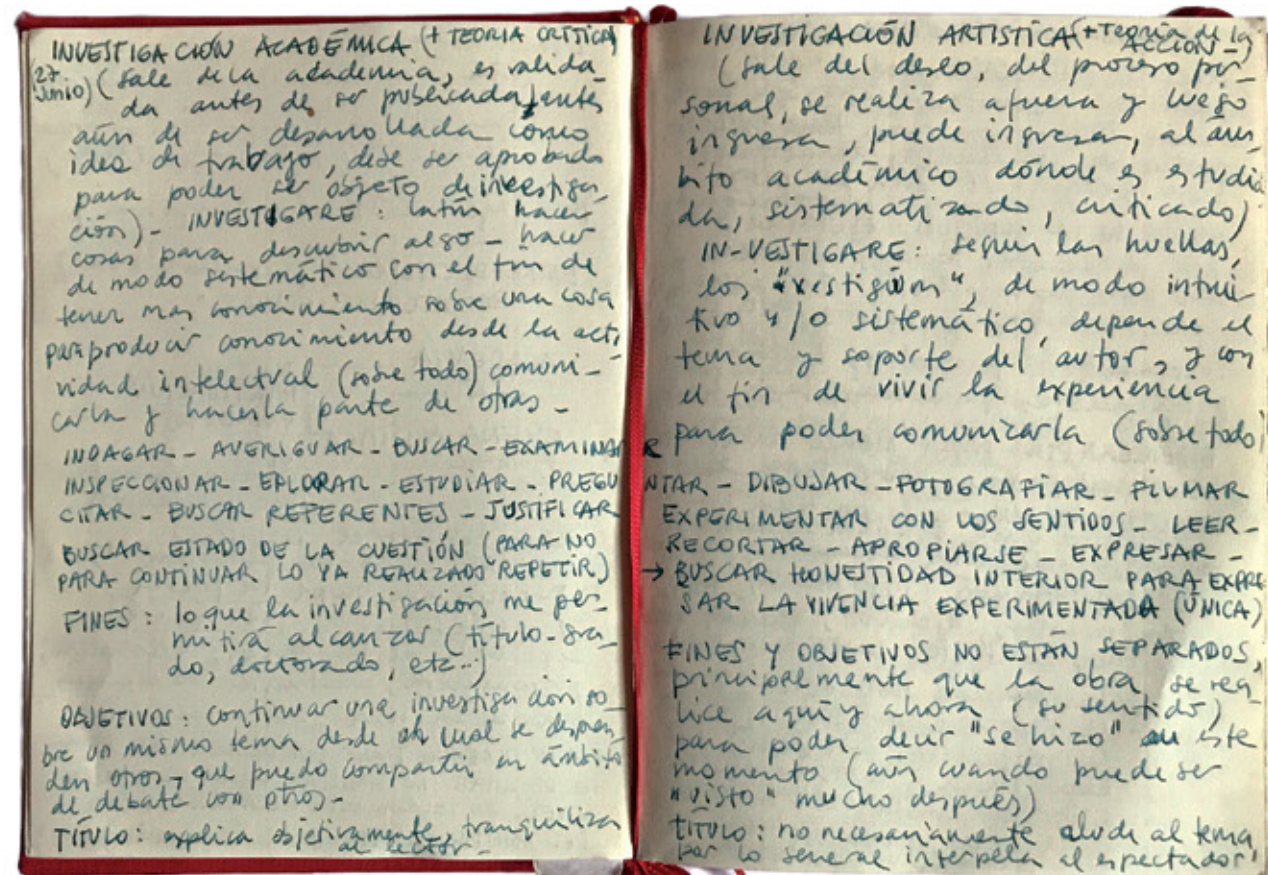 INVESTIGACIÓN ACADÉMICA (+ TEORIA CRÍTICA)
27 JUNIO) (sale de la academia, es valida_
da antes de ser publicada, antes
aún de ser desarrollada como
idea de trabajo, debe ser aprobada
para poder ser objeto de investiga_
ción)_ INVESTIGARE: latín hacer
cosas para descubrir algo_ hacer
de modo sistemático con el fin de
tener mas conocimiento sobre una cosa
para producir conocimiento desde la acti_
vidad intelectual (sobre todo) comuni_
carla y hacerla parte de otras_
INDAGAR_ AVERIGUAR_ BUSCAR_ EXAMINAR
INSPECCIONAR_ EXPLORAR_ ESTUDIAR_ PREGU
CITAR_ BUSCAR REFERENTES_ JUSTIFICAR
BUSCAR ESTADO DE LA CUESTIÓN (PARA NO
PARA CONTINUAR LO YA REALIZADO REPETIR)
FINES: lo que la investigación me per_
mitirá alcanzar (título_ gra_
do, doctorado, etc...)
OBJETIVOS: continuar una investigación so_
bre un mismo tema desde el cual se despren_
den otros_ que puedo compartir en ámbito
de debate con otros_
TÍTULO: explica objetivamente, tranquiliza
al lector_
INVESTIGACIÓN ARTISTICA (+ Teoría de la
ACCIÓN_)
(sale del deseo, del proceso per_
sonal, se realiza afuera y luego
ingresa, puede ingresar, al ám_
bito académico dónde es estudia
da, sistematizando, criticando)
IN-VESTIGARE: seguir las huellas,
los "vestigium", de modo intui_
tivo y/o sistemático, depende el
tema y soporte del autor, y con
el fin de vivir la experiencia
para poder comunicarla (sobre todo)
NTAR_ DIBUJAR_ FOTOGRAFIAR_ FILMAR
EXPERIMENTAR CON LOS SENTIDOS_ LEER_
RECORTAR_ APROPIARSE_ EXPRESAR_
→ BUSCAR HONESTIDAD INTERIOR PARA EXPRE
SAR LA VIVENCIA EXPERIMENTADA (ÚNICA)
FINES Y OBJETIVOS NO ESTÁN SEPARADOS,
principalmente que la obra se rea_
lice aquí y ahora (su sentido)
para poder decir "se hizo" en este
momento (aún cuando puede ser
"visto" mucho después)
TÍTULO: no necesariamente alude al tema
por lo general interpela al espectador